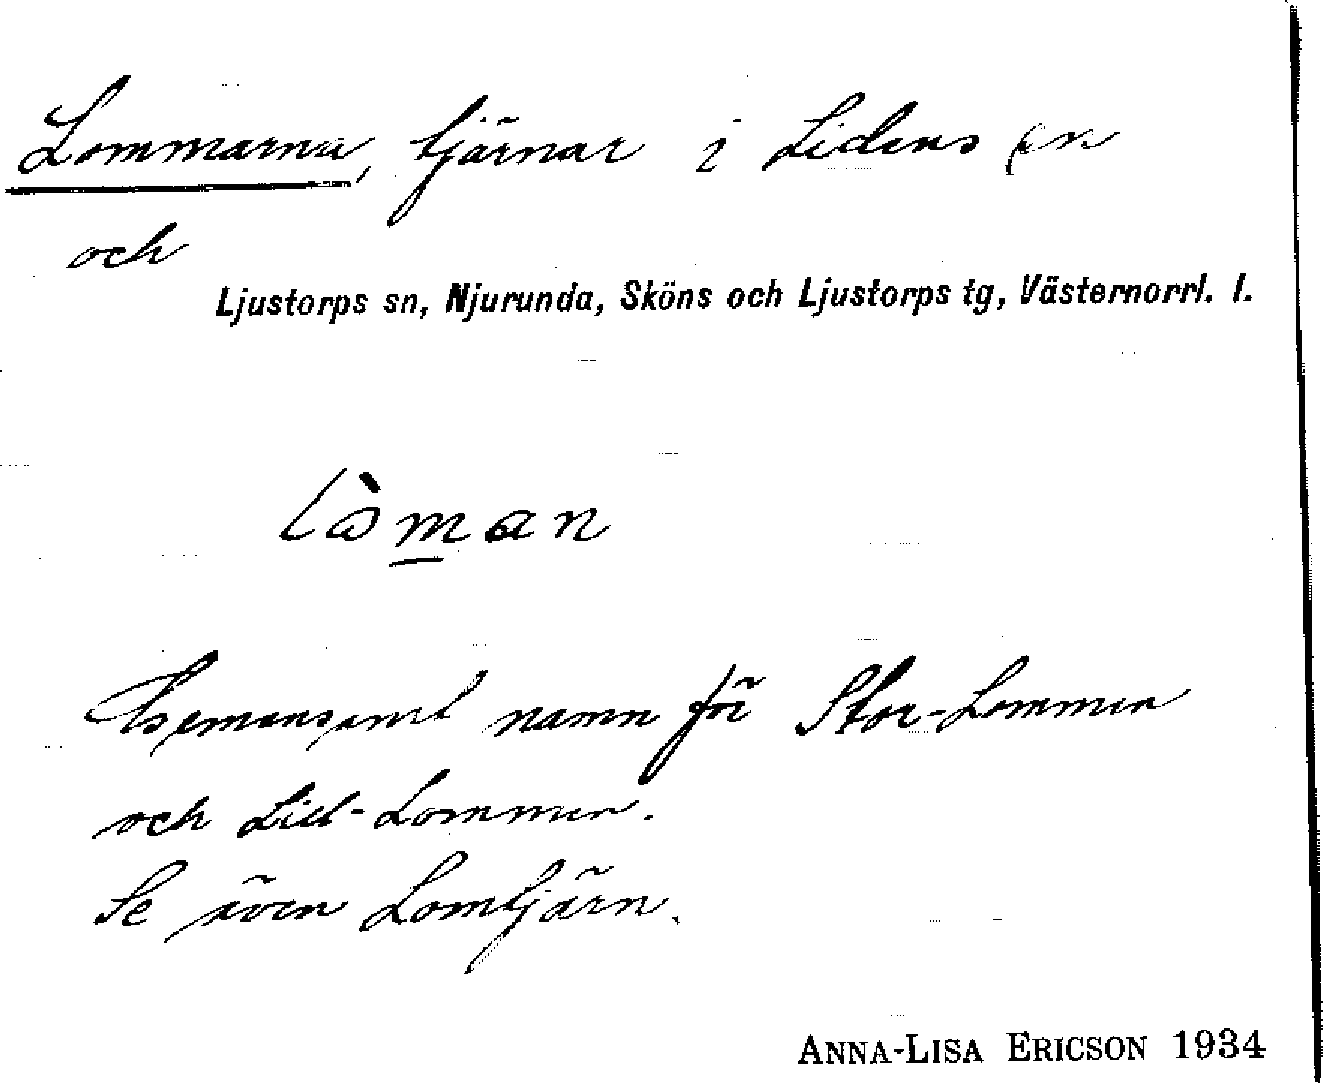 Lommarna, tjärnar i Lidens sn
och
Ljustorps sn, Njurunda, Sköns och Ljustorps tg, Västernorrl. l.
lòman
Gemensamt namn för Stor-Lommen
och Lill-Lommen.
Se även Lomtjärn.
ANNA-LISA ERICSON 1934